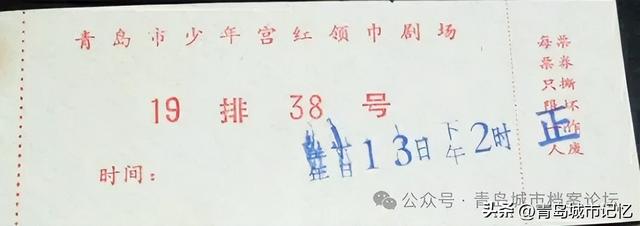 青岛市少年宫红领巾剧场
19排38号
时间：
13日下午2时
正
票券撕坏作废
每票只限一人
公众号·青岛城市档案论坛
头条@青岛城市记忆